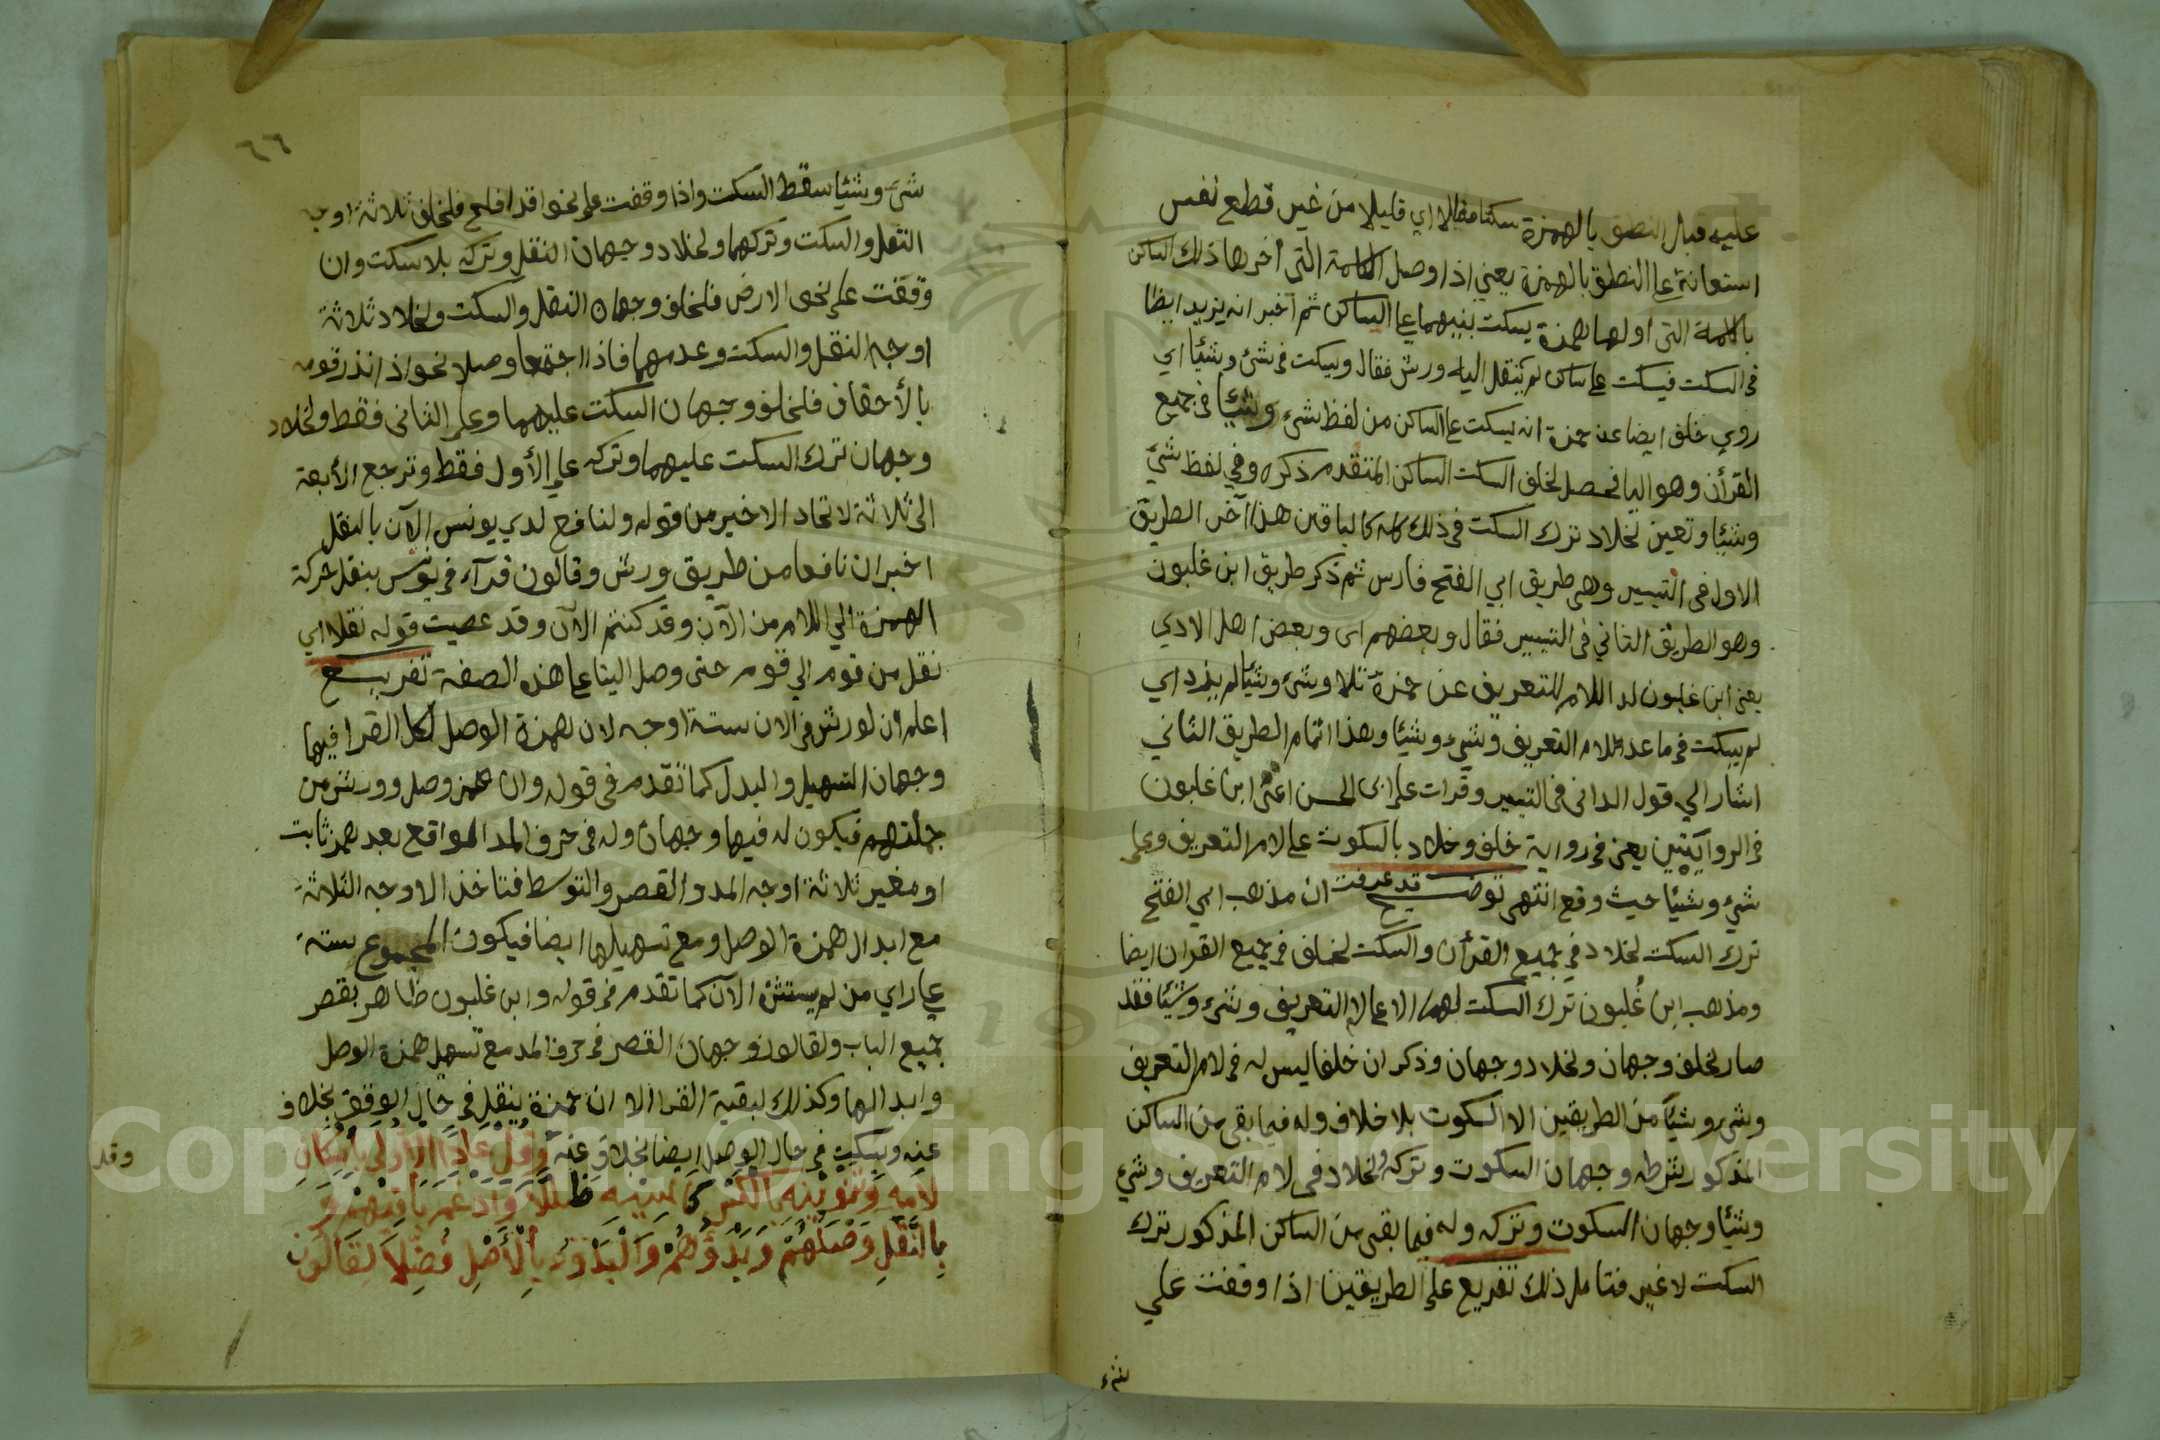 عليه قبل النطق بالهمزة سكتا مقللا اي قليلا من غير قطع نفس
استعانة على النطق بالهمزة يعني اذا وصل الكلمة التي آخرها ذلك الساكن
بالكلمة التي اولها همزة يسكت بينهما على الساكن ثم اخبر انه يزيد ايضا
في السكت فيسكت على ساكن لم ينقل اليه ورش فقال ويسكت في شئ وشيئا اي
روى خلف ايضا عن حمزة انه يسكت على الساكن من لفظ شيء وشيئا في جميع
القرآن وهو اليا فحصل لخلف السكت الساكن المتقدم ذكره وفي لفظ شئ
وشيئا وتعين لخلاد ترك السكت في ذلك كله كالباقين هذا آخر الطريق
الاول في التيسير وهي طريق ابي الفتح فارس ثم ذكر طريق ابن غلبون
وهو الطريق الثاني في التيسير فقال وبعضهم اى وبعض اهل الادي
يعني ابن غلبون لدا اللام للتعريف عن حمزة تلا وشئ وشيئا لم يزد اي
لم يسكت في ما عدا لام التعريف وشيء وشيئا وهذا اتمام الطريق الثاني
اشار الي قول الداني في التيسير وقرات على ابى الحسن اعني ابن غلبون
في الروايتين يعني في رواية خلف وخلاد بالسكوت على لام التعريف وعلى
شيء وشيئا حيث وقع انتهى توضيح قد عرفت ان مذهب ابي الفتح
ترك السكت لخلاد في جميع القرآن والسكت لخلف في جميع القران ايضا
ومذهب ابن غُلبون ترك السكت لهما الا على لام التعريف وشيء وشيئا فقد
صار لخلف وجهان ولخلاد وجهان وذكر ان خلفا ليس له في لام التعريف
وشيء وشيئا من الطريقين الا السكوت بلا خلاف وله فيما بقى من الساكن
المذكور بشرطه وجهان السكوت وتركه ولخلاد في لام التعريف وشيء
وشيئا وجهان السكوت وتركه وله فيما بقى من الساكن المذكور ترك
السكت لا غير فتامل ذلك تفريع على الطريقين اذا وقفت على
شيء
٦٦
شئ وشيئا سقط السكت واذا وقفت على نحو قد افلح فلخلف ثلاثة اوجه
النقل والسكت وتركهما ولخلاد وجهان النقل وتركه بلا سكت وان
وقفت على نحو الارض فلخلف وجهان النقل والسكت ولخلاد ثلاثة
اوجه النقل والسكت وعدمهما فاذا اجتمعا وصلا نحو اذ انذر قومه
بالأحقاف فلخلف وجهان السكت عليهما وعلى الثاني فقط ولخلاد
وجهان ترك السكت عليهما وتركه على الأول فقط وترجع الأربعة
الى ثلاثة لاتحاد الاخير من قوله ولنافع لدي يونس الآن بالنقل
اخبر ان نافعا من طريق ورش وقالون قرآء في يونس بنقل حركة
الهمزة الي اللام من الآن وقد كنتم الآن وقد عصيت قوله نقلا اي
نقل من قوم الي قوم حتى وصل الينا على هذه الصفة تفريع
اعلم ان لورش في الان ستة اوجه لان همزة الوصل لكل القرا فيها
وجهان التسهيل والبدل كما تقدم في قوله وان همز وصل وورش من
جملتهم فيكون له فيها وجهان وله في حرف المد الواقع بعد همز ثابت
او مغير ثلاثة اوجه المد والقصر والتوسط فتاخذ الاوجه الثلاثة
مع ابدال همزة الوصل ومع تسهيلها ايضا فيكون المجموع ستة
على راي من لم يستثن الآن كما تقدم في قوله وابن غلبون طاهر بقصر
جميع الباب ولقالون وجهان القصر في حرف المد مع تسهيل همزة الوصل
وابدالها وكذلك لبقية القرا الا ان حمزة ينقل في حال الوقف بخلاف
عنه ويسكت في حال الوصل ايضا بخلاف عنه وَقُلْ عَادًا الأولى بإسكان
لامه وتنوينه بالكسر كاسيه ظللا وادغم باقيهم و
بالنقل وصلهم وبدؤهم والبدؤ بالأصل فُضِّلا لقالون
وقد
Copyright © King Saud University
195